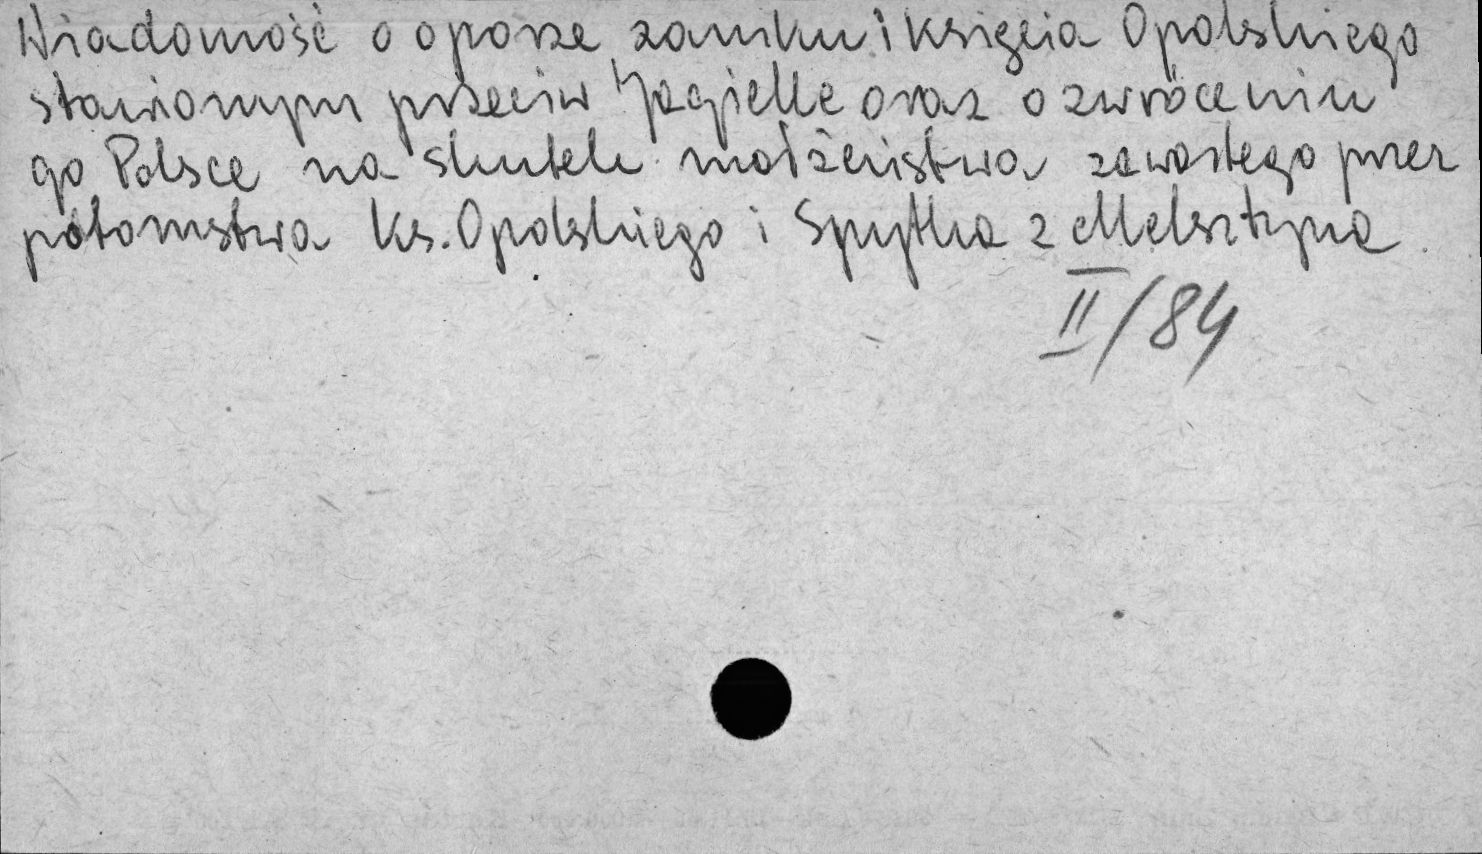 Wiadomość o oporze zamku i księcia Opolskiego
stawionym przeciw Jagielle oraz o zwróceniu
go Polsce na skutek małżeństwa zawartego przez
potomstwa Ks. Opolskiego i Spytka z Melsztyna.
II/84